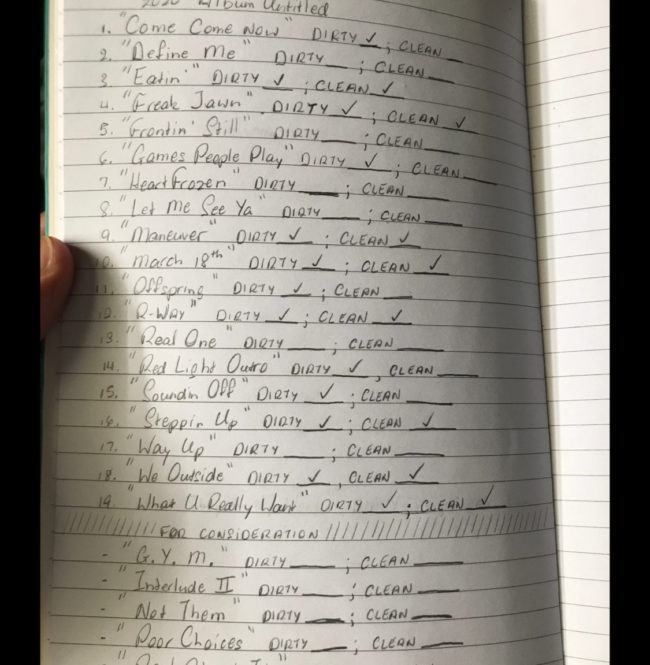 2020 Album Untitled
1. "Come Come Now" DIRTY ✓ ; CLEAN __
2. "Define Me" DIRTY __ ; CLEAN __
3 "Eatin'" DIRTY ✓ ; CLEAN ✓
4. "Freak Jawn" DIRTY ✓ ; CLEAN ✓
5. "Frontin' Still" DIRTY __ ; CLEAN __
6. "Games People Play" DIRTY ✓ ; CLEAN __
7. "Heart Frozen" DIRTY __ ; CLEAN __
8. "Let Me See Ya" DIRTY __ ; CLEAN __
9. "Maneuver" DIRTY ✓ ; CLEAN ✓
10. "March 18th" DIRTY ✓ ; CLEAN ✓
11. "Offspring" DIRTY ✓ ; CLEAN __
12. "R-Way" DIRTY ✓ ; CLEAN ✓
13. "Real One" DIRTY __ ; CLEAN __
14. "Red Light Outro" DIRTY ✓ , CLEAN __
15. "Soundin Off" DIRTY ✓ ; CLEAN __
16. "Steppin Up" DIRTY ✓ ; CLEAN ✓
17. "Way Up" DIRTY __ ; CLEAN __
18. "We Outside" DIRTY ✓ , CLEAN ✓
19. "What U Really Want" DIRTY ✓ ; CLEAN ✓
FOR CONSIDERATION
- "G.Y.M." DIRTY __ ; CLEAN __
- "Interlude II" DIRTY __ ; CLEAN __
- "Not Them" DIRTY __ ; CLEAN __
- "Poor Choices" DIRTY __ ; CLEAN __